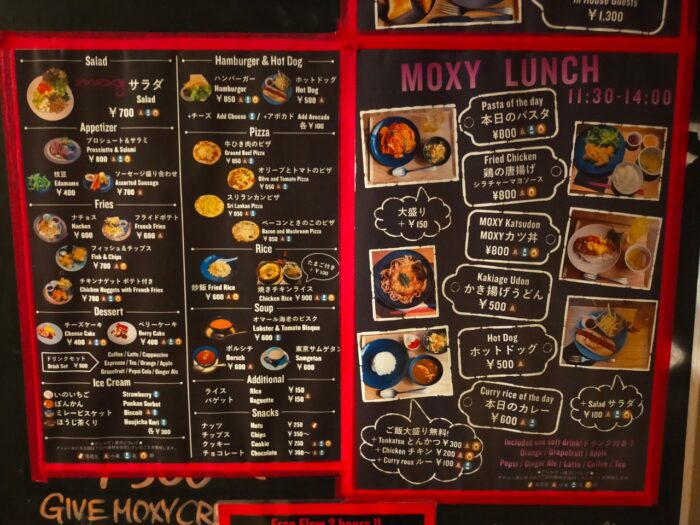 Salad
moxy サラダ
Salad
¥700
Appetizer
プロシュート&サラミ
Prosciutto & Salami
¥800
枝豆
Edamame
¥400
ソーセージ盛り合わせ
Assorted Sausage
¥780
Fries
ナチョス
Nachos
¥600
フライドポテト
French Fries
¥600
フィッシュ&チップス
Fish & Chips
¥700
チキンナゲット ポテト付き
Chicken Nuggets with French Fries
¥700
Dessert
チーズケーキ
Cheese Cake
¥400
ベリーケーキ
Berry Cake
¥400
ドリンクセット
Drink Set ¥900
Coffee / Latte / Cappuccino
Espresso / Tea / Orange / Apple
Grapefruit / Pepsi Cola / Ginger Ale
Ice Cream
いのいちご Strawberry
ぽんかん Punkan Sorbet
ミレービスケット Biscuit
ほうじ茶くり Houjicha Kuri
各¥300
Hamburger & Hot Dog
ハンバーガー
Hamburger
¥850
ホットドッグ
Hot Dog
¥500
+チーズ Add Cheese / +アボカド Add Avocado
各¥100
Pizza
牛ひき肉のピザ
Ground Beef Pizza
¥850
オリーブとトマトのピザ
Olive and Tomato Pizza
¥850
スリランカンピザ
Sri Lankan Pizza
¥850
ベーコンときのこのピザ
Bacon and Mushroom Pizza
¥850
Rice
たまご付き
+¥100
炒飯 Fried Rice
¥600
焼きチキンライス
Chicken Rice ¥900
Soup
オマール海老のビスク
Lobster & Tomato Bisque
¥600
ボルシチ
Borsch
¥600
東京サムゲタン
Samgetan
¥600
Additional
ライス Rice ¥150
バゲット Baguette ¥150
Snacks
ナッツ Nuts ¥250
チップス Chips ¥350
クッキー Cookie ¥250
チョコレート Chocolate ¥300
In House Guests
¥1,300
MOXY LUNCH
11:30-14:00
Pasta of the day
本日のパスタ
¥800
Fried Chicken
鶏の唐揚げ
シラチャーマヨソース
¥800
大盛り
+¥150
MOXY Katsudon
MOXYカツ丼
¥800
Kakiage Udon
かき揚げうどん
¥500
Hot Dog
ホットドッグ
¥500
Curry rice of the day
本日のカレー
¥600
+Salad サラダ
¥100
ご飯大盛り無料!
+Tonkatsu とんかつ ¥300
+Chicken チキン ¥200
+Curry roux ルー ¥100
Included one soft drink! ドリンク付き!
Orange / Grapefruit / Apple
Pepsi / Ginger Ale / Latte / Coffee / Tea
GIVE MOXY CR
Free Flow 2 hours !!